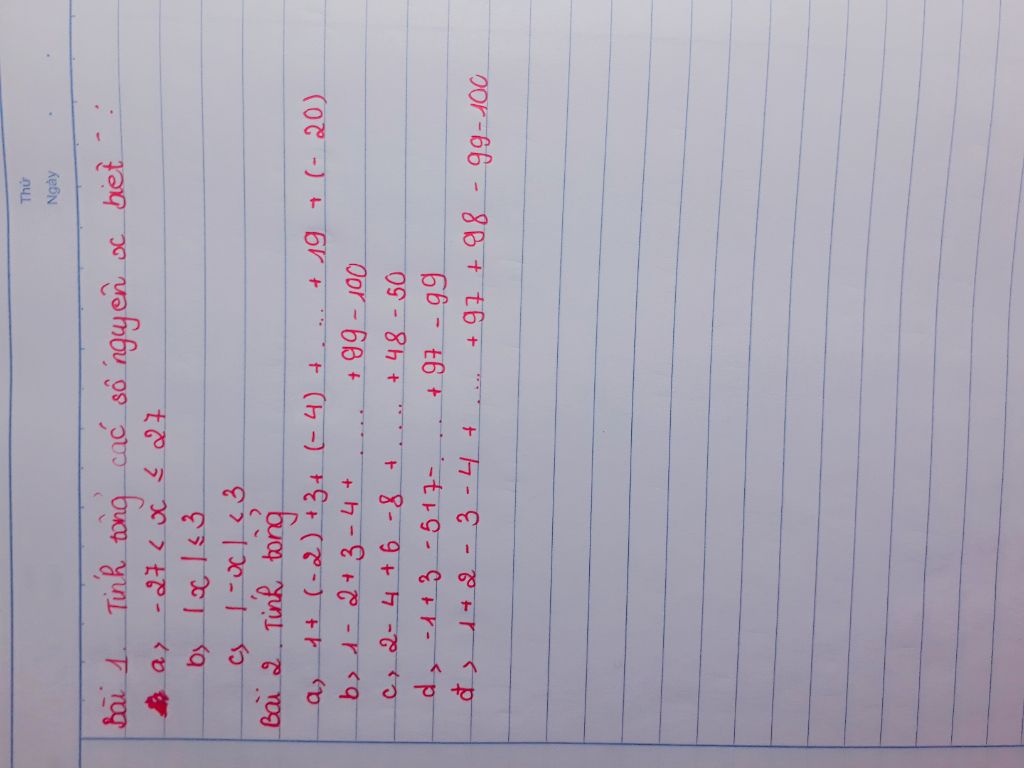 Thứ
Ngày
Bài 1. Tính tổng các số nguyên x biết :
a, -27 < x ≤ 27
b, |x| ≤ 3
c, |-x| < 3
Bài 2. Tính tổng
a, 1 + (-2) + 3 + (-4) + ... + 19 + (-20)
b, 1 - 2 + 3 - 4 + ..... + 99 - 100
c, 2 - 4 + 6 - 8 + ..... + 48 - 50
d, -1 + 3 - 5 + 7 - .... + 97 - 99
đ, 1 + 2 - 3 - 4 + .... + 97 + 98 - 99 - 100